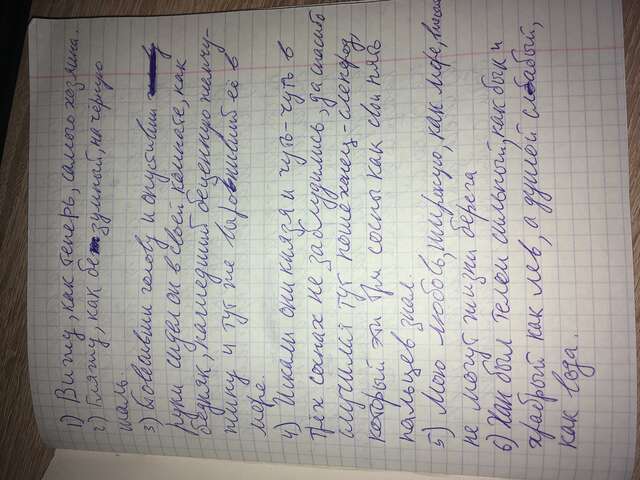 1) Вижу, как теперь, самого хозяина.
2) Гляжу, как безумный, на чёрную
шаль.
3) Повесивши голову и опустивши
руки сидел он в своей комнате, как
бедняк, нашедший бесценную жемчу-
жину и тут же выронивший её в
море.
4) Искали они князя и чуть-чуть в
трёх соснах не заблудились, да спасибо
случился тут пошехонец-слепород,
который эти три сосны как свои пять
пальцев знал.
5) Мою любовь, широкую, как море,
не могут жизни берега
6) Хан был телом сильный, как бык и
храбрый как лев, а душой слабый,
как вода.